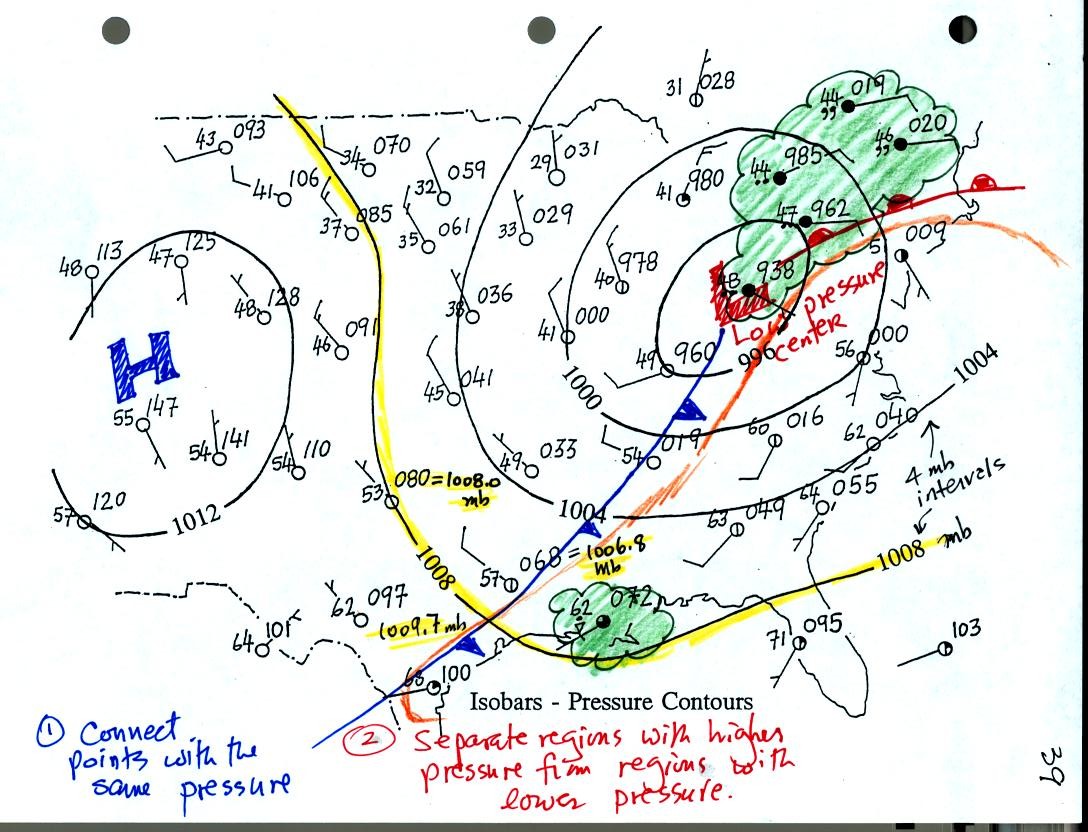 31 028
44 019
,,
46 020
,,
43 093
34 070
32 059
29 031
44 985
41 980
41 106
37 085
35 061
33 029
47 962
48 113
47 125
48 128
38 036
40 978
48 938
5 009
46 091
41 000
Low pressure
center
H
49 960
996
56 000
1004
55 147
45 041
1000
60 016
62 040
54 141
54 110
49 033
54 019
4 mb
intervals
57 120
1012
53 080 = 1008.0
mb
1004
63 049
64 055
1008
57 068 = 1006.8
mb
1008 mb
62 097
1009.7 mb
62 072
64 101
71 095
103
68 100
Isobars - Pressure Contours
① Connect
points with the
same pressure
② Separate regions with higher
pressure from regions with
lower pressure.
39